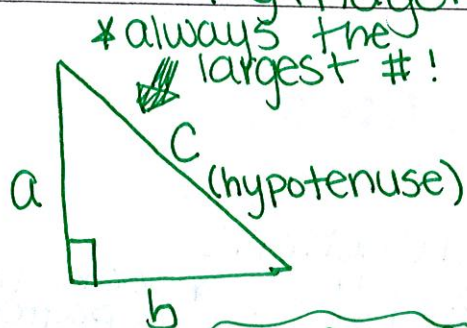 *always the
largest #!
C
(hypotenuse)
a
b